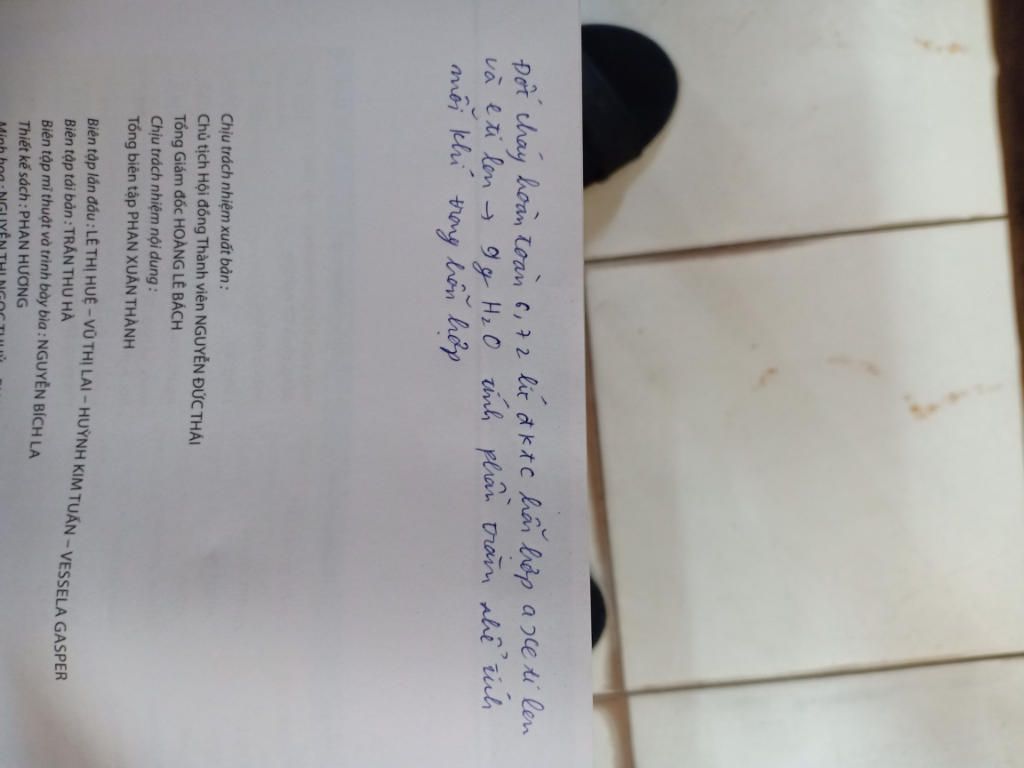 Đốt cháy hoàn toàn 6,72 lít đktc hỗn hợp axetilen
và etilen → 9g H₂O tính phần trăm thể tích
mỗi khí trong hỗn hợp
Chịu trách nhiệm xuất bản :
Chủ tịch Hội đồng Thành viên NGUYỄN ĐỨC THÁI
Tổng Giám đốc HOÀNG LÊ BÁCH
Chịu trách nhiệm nội dung :
Tổng biên tập PHAN XUÂN THÀNH
Biên tập lần đầu : LÊ THỊ HUỆ – VŨ THỊ LAI – HUỲNH KIM TUẤN – VESSELA GASPER
Biên tập tái bản : TRẦN THU HÀ
Biên tập mĩ thuật và trình bày bìa : NGUYỄN BÍCH LA
Thiết kế sách : PHAN HƯƠNG
Minh hoạ : NGUYỄN THỊ NGỌC THUỶ